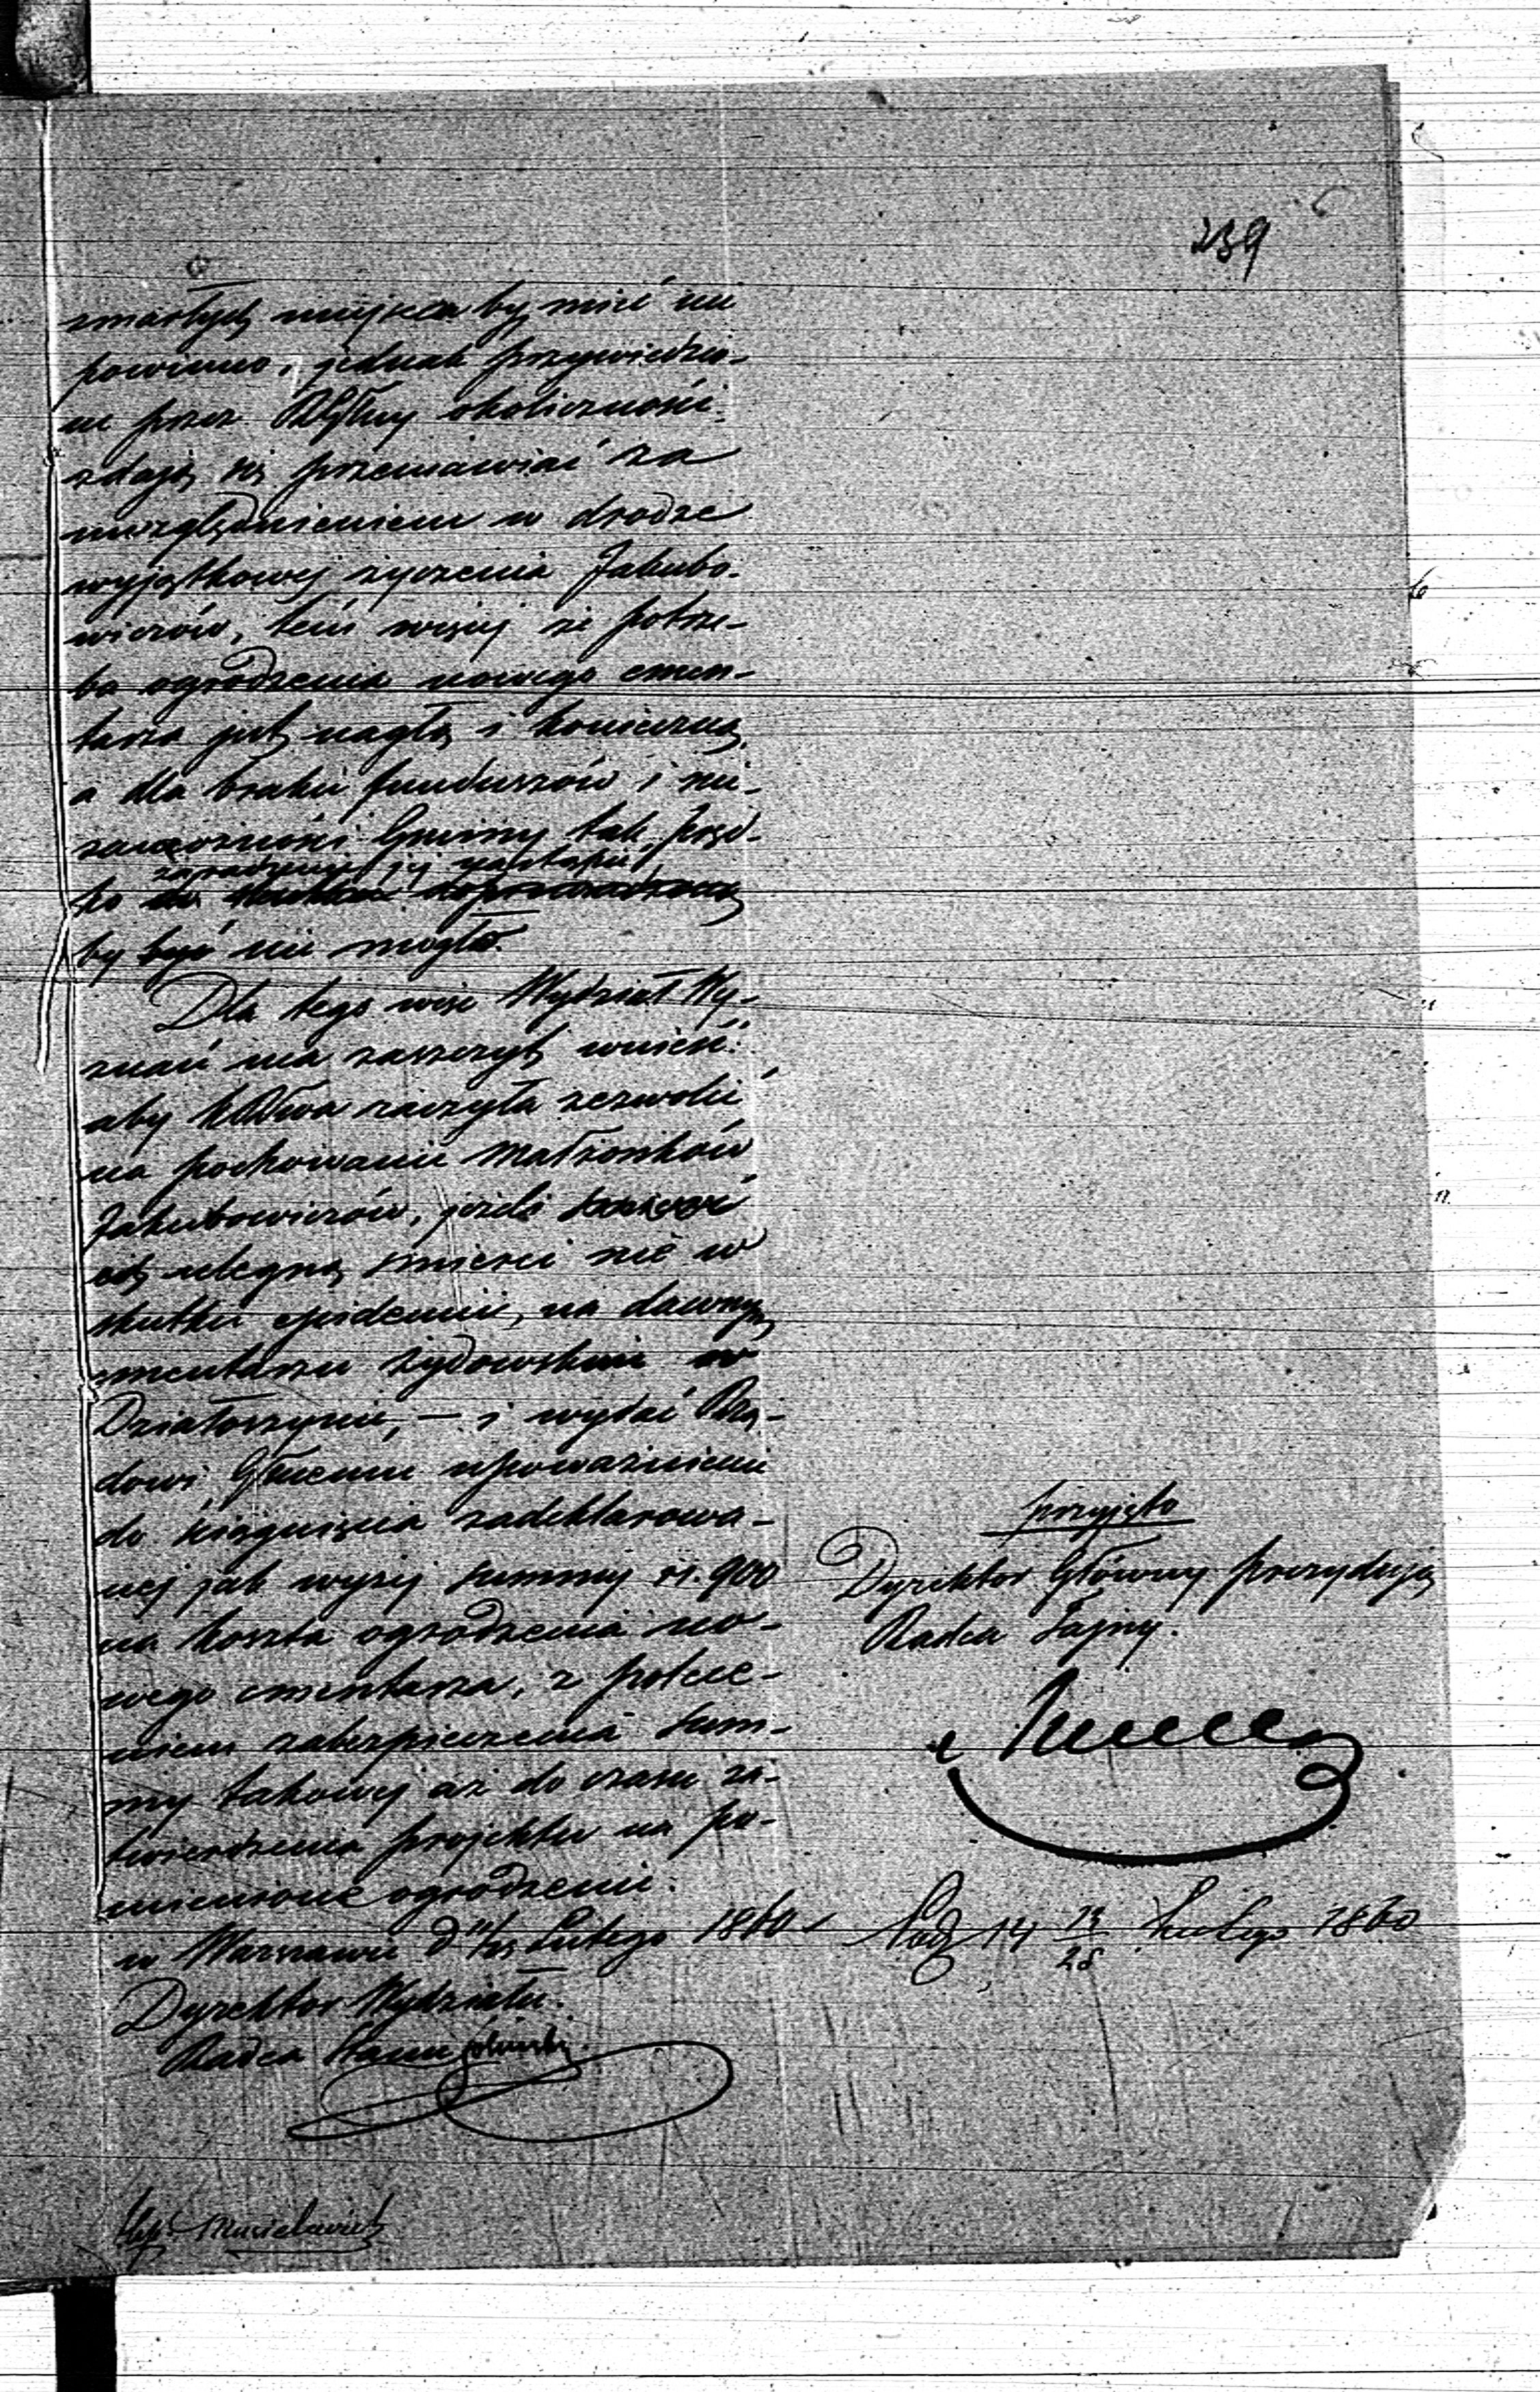 239
zmarłych miejsca by mieć nie
powinno, jednak przywiedzio-
ne przez okoliczności
zdają się przemawiać za
uwzględnieniem w drodze
wyjątkowej życzenia Jakubo-
wiczów, tem więcej że potrze-
ba ogrodzenia nowego cmen-
tarza jest nagłą i konieczną,
a dla braku funduszów i nie-
zamożności Gminy tak pręd-
zaradzenie jej nastąpić
ko do skutku doprowadzoną
by być nie mogło.
Dla tego więc Wydział Wy-
znań ma zaszczyt wnieść:
aby raczyła zezwolić
na pochowanie Małżonków
Jakubowiczów, jeżeli
ulegną śmierci nie w
skutku epidemii, na dawnym
cmentarzu żydowskim w
Działoszynie, — i wydać Rzą-
dowi upoważnienie
do ściągnięcia zadeklarowa-
nej jak wyżej summy rs. 900
na koszta ogrodzenia no-
wego cmentarza, z polece-
niem zabezpieczenia sum-
my takowej aż do czasu za-
twierdzenia projektu na po-
mienione ogrodzenie.
w Warszawie d Lutego 1860
Dyrektor Wydziału
Radca Stanu
przyjęto
Dyrektor Główny Prezydujący
Radca Tajny.
14 13/25 Lutego 1860